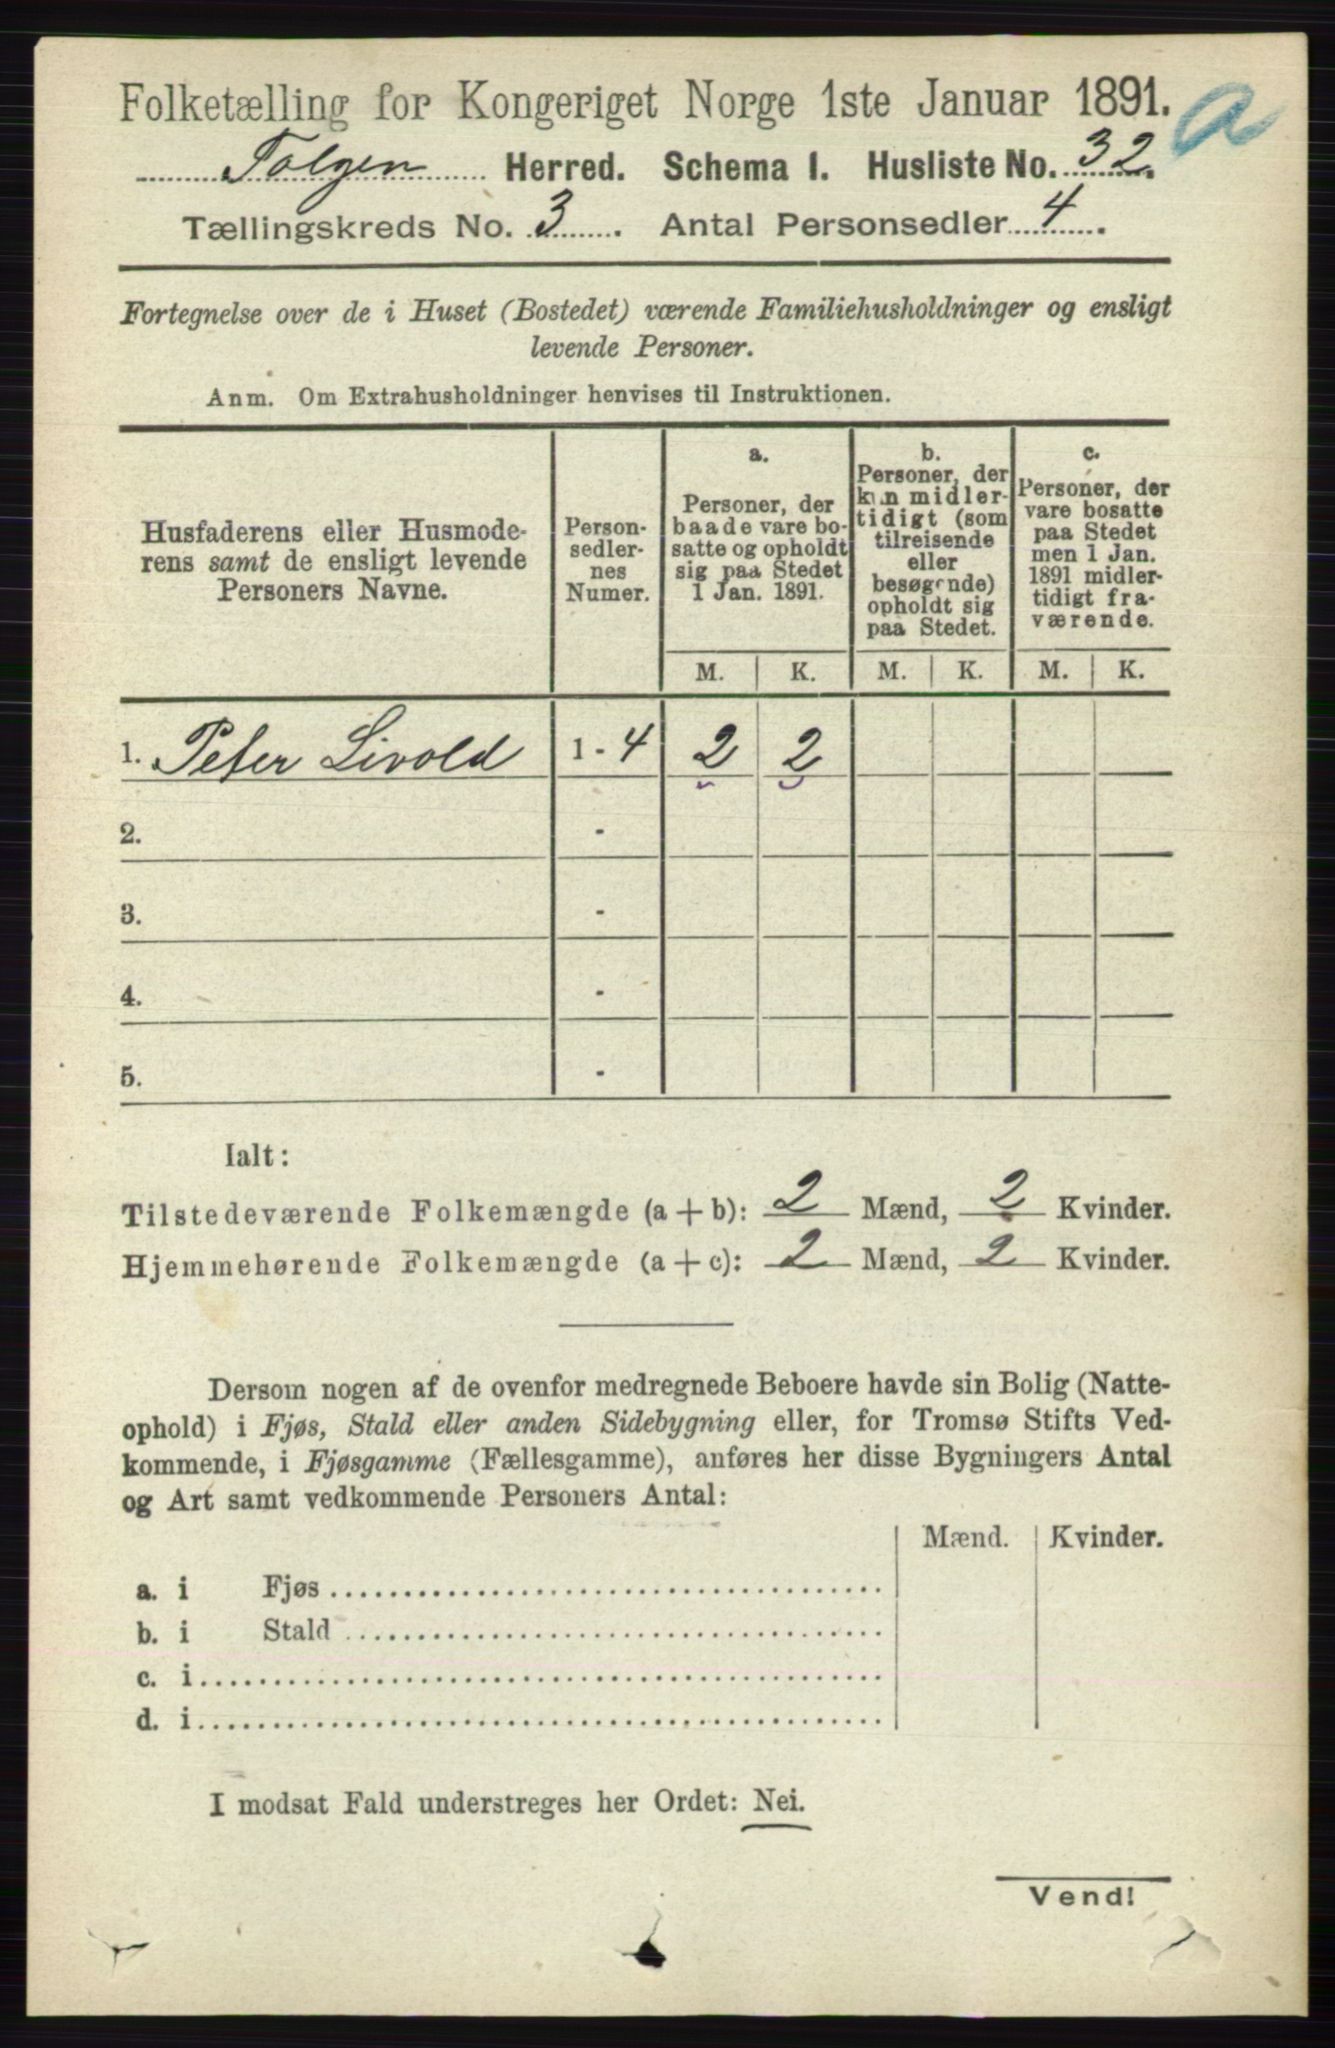 Folketælling for Kongeriget Norge 1ste Januar 1891.
a
Tolgen Herred. Schema I. Husliste No. 32.
Tællingskreds No. 3. Antal Personsedler 4.
Fortegnelse over de i Huset (Bostedet) værende Familiehusholdninger og ensligt
levende Personer.
Anm. Om Extrahusholdninger henvises til Instruktionen.
Husfaderens eller Husmode-
rens samt de ensligt levende
Personers Navne.
Person-
sedler-
nes
Numer.
a.
Personer, der
baade vare bo-
satte og opholdt
sig paa Stedet
1 Jan. 1891.
b.
Personer, der
kun midler-
tidigt (som
tilreisende
eller
besøgende)
opholdt sig
paa Stedet.
c.
Personer, der
vare bosatte
paa Stedet
men 1 Jan.
1891 midler-
tidigt fra-
værende.
M. K. M. K. M. K.
1. Peter Livold 1 - 4 2 2
2. -
3. -
4. -
5. -
Ialt:
Tilstedeværende Folkemængde (a + b): 2 Mænd, 2 Kvinder.
Hjemmehørende Folkemængde (a + c): 2 Mænd, 2 Kvinder.
Dersom nogen af de ovenfor medregnede Beboere havde sin Bolig (Natte-
ophold) i Fjøs, Stald eller anden Sidebygning eller, for Tromsø Stifts Ved-
kommende, i Fjøsgamme (Fællesgamme), anføres her disse Bygningers Antal
og Art samt vedkommende Personers Antal:
Mænd. Kvinder.
a. i Fjøs
b. i Stald
c. i
d. i
I modsat Fald understreges her Ordet: Nei.
Vend!